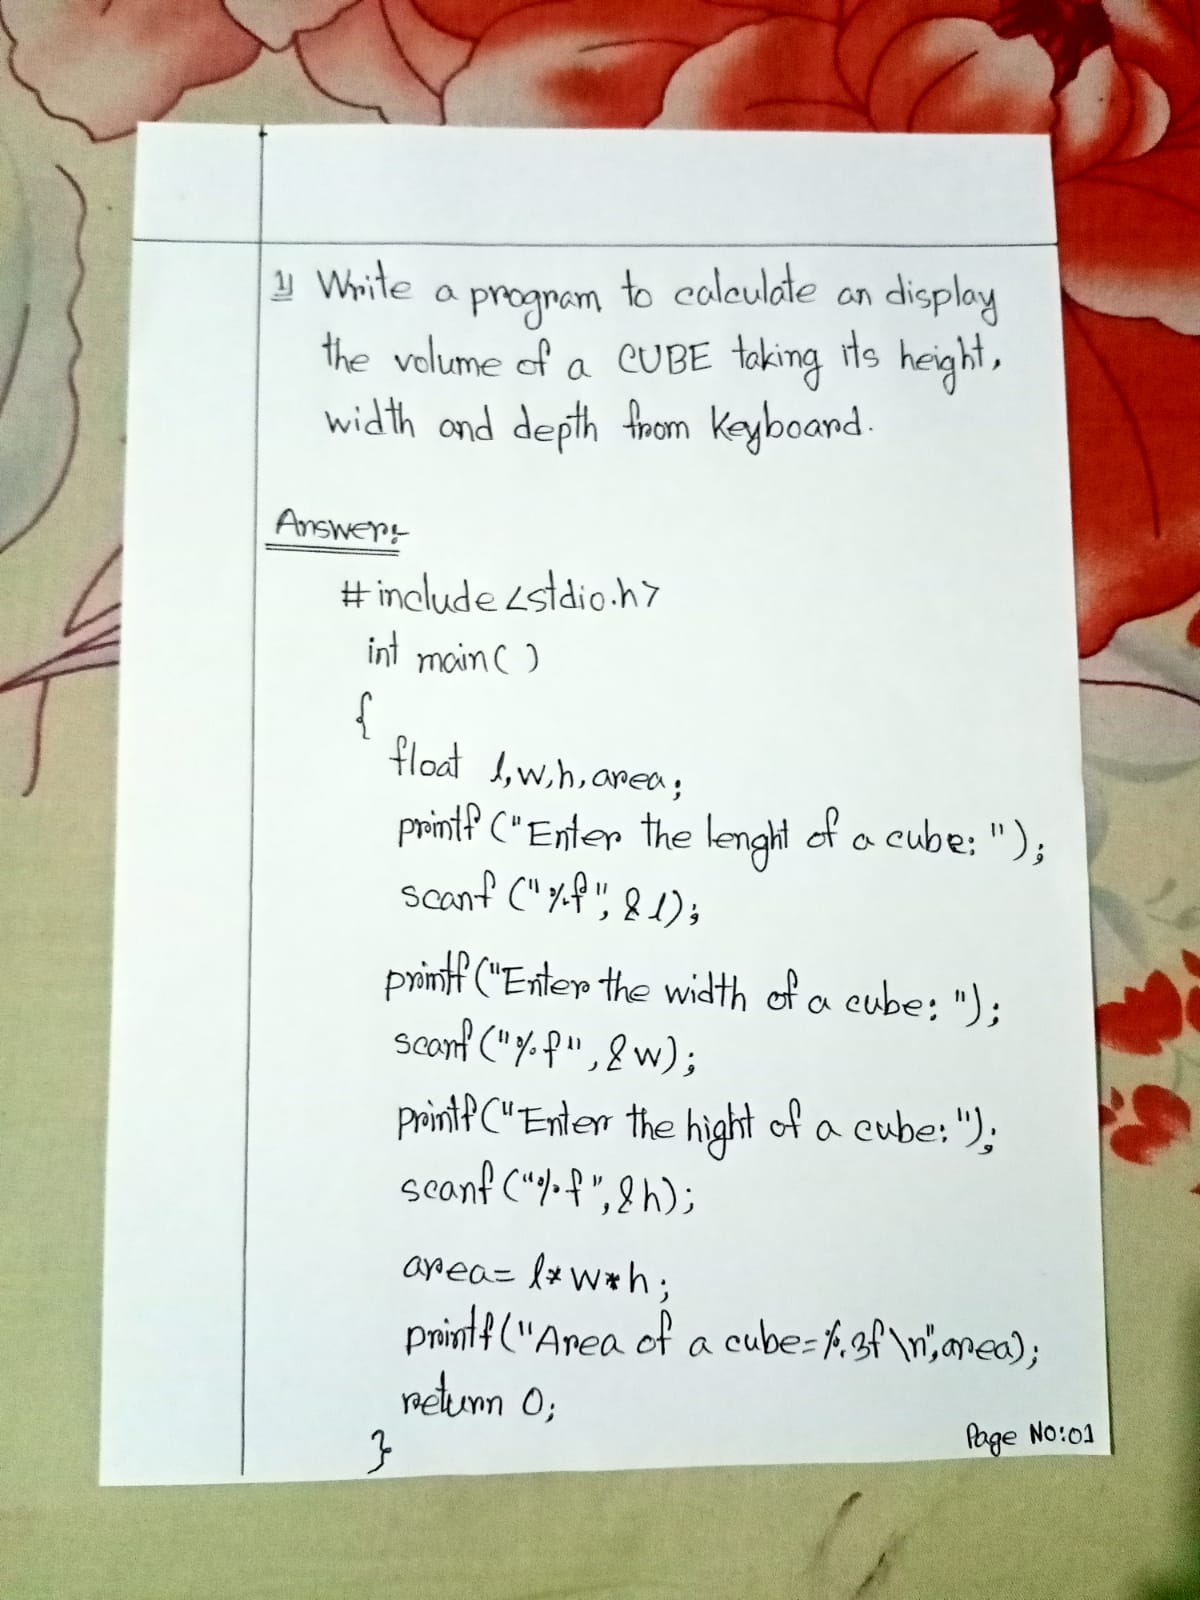 1) Write a program to calculate an display
the volume of a CUBE taking its height,
width and depth from keyboard.
Answer:-
#include <stdio.h>
int main( )
{
float l, w, h, area;
printf ("Enter the lenght of a cube: ");
scanf ("%f", &l);
printf ("Enter the width of a cube: ");
scanf ("%f", &w);
printf ("Enter the hight of a cube: ");
scanf ("%f", &h);
area = l*w*h;
printf ("Area of a cube=%.3f \n", area);
return 0;
}
Page No:01